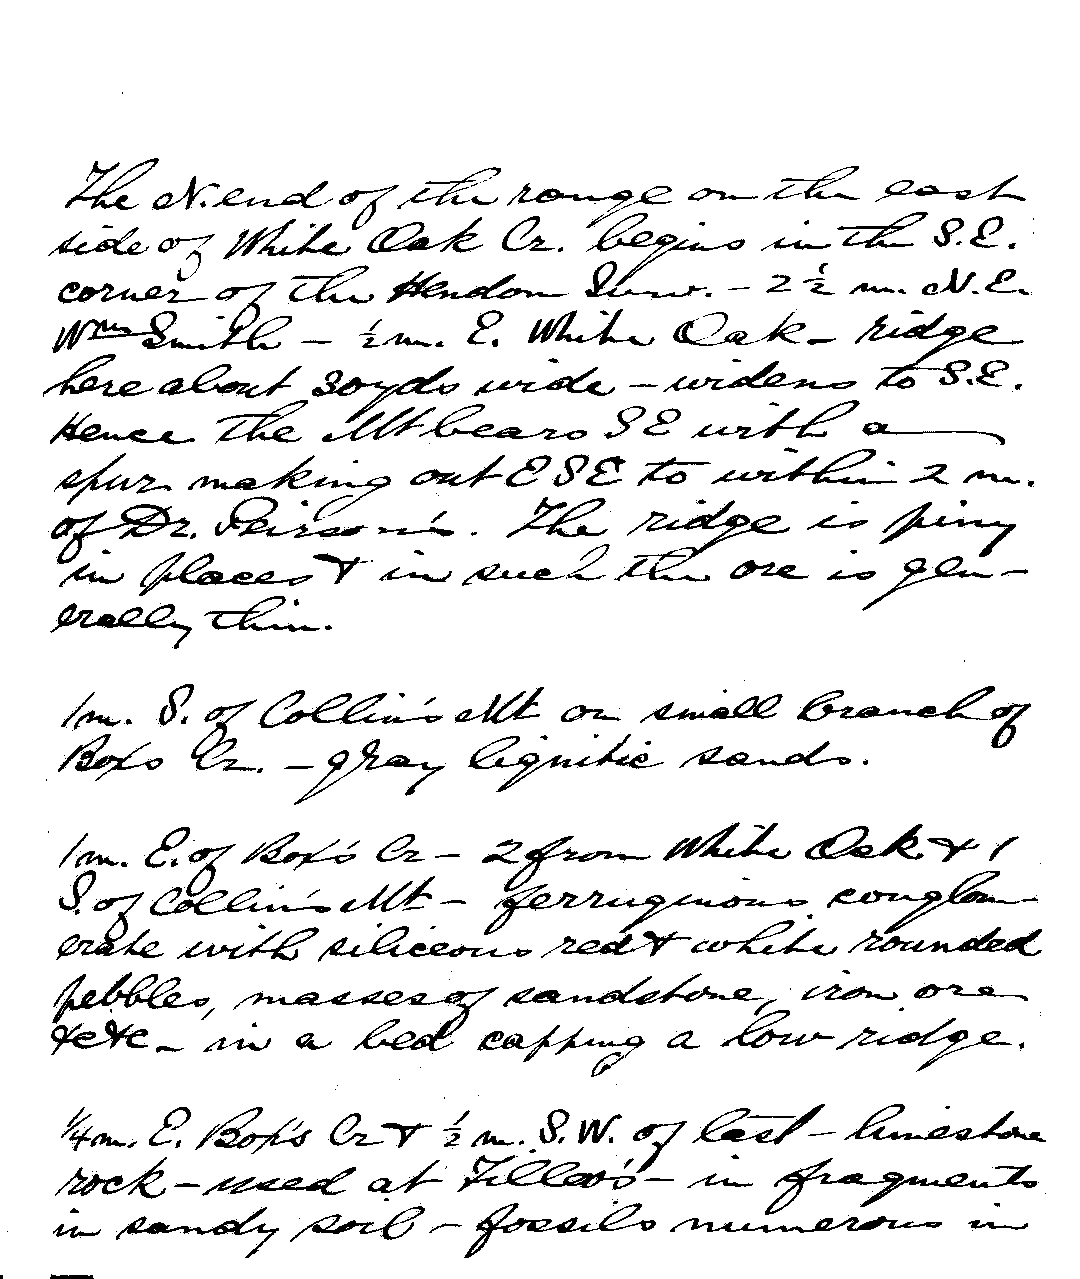 The N. end of the range on the east
side of White Oak Cr. begins in the S.E.
corner of the Hendon Surv. - 2 ½ m. N.E.
Wms Smith - ½ m. E. White Oak - ridge
here about 30 yds wide - widens to S.E.
Hence the Mt bears SE with a
spur making out ESE to within 2 m.
of Dr. Peirson's. The ridge is piny
in places & in such the ore is gen-
erally thin.
1m. S. of Collin's Mt on small branch of
Box's Cr. - gray lignitic sands.
1m. E. of Box's Cr - 2 from White Oak & 1
S. of Collin's Mt - ferruginous conglom-
erate with siliceous red & white rounded
pebbles, masses of sandstone, iron ore
&c &c - in a bed capping a low ridge.
¼ m. E. Box's Cr & ½ m. S.W. of last - limestone
rock - used at - in fragments
in sandy soil - fossils numerous in